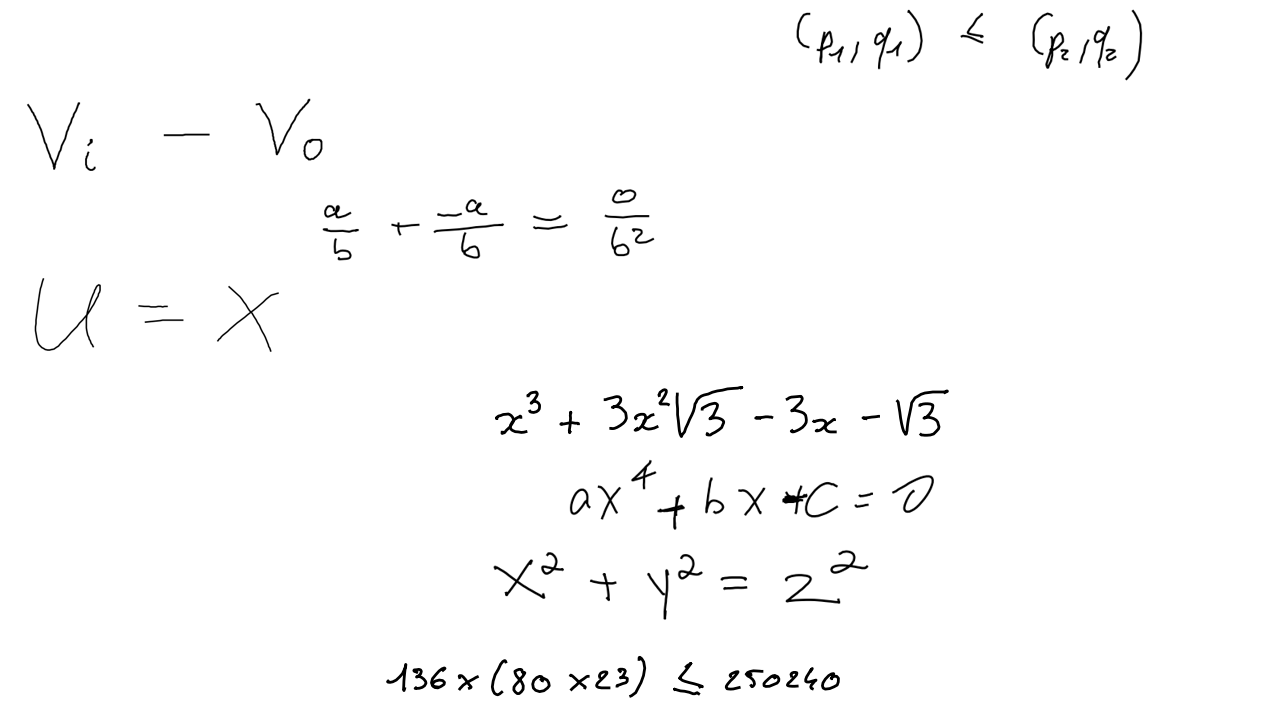 (p₁, q₁) ≤ (p₂, q₂)
Vᵢ − V₀
a/b + −a/b = 0/b²
u = x
x³ + 3x²√3 − 3x − √3
ax⁴ + bx + c = 0
x² + y² = z²
136 × (80 × 23) ≤ 250240